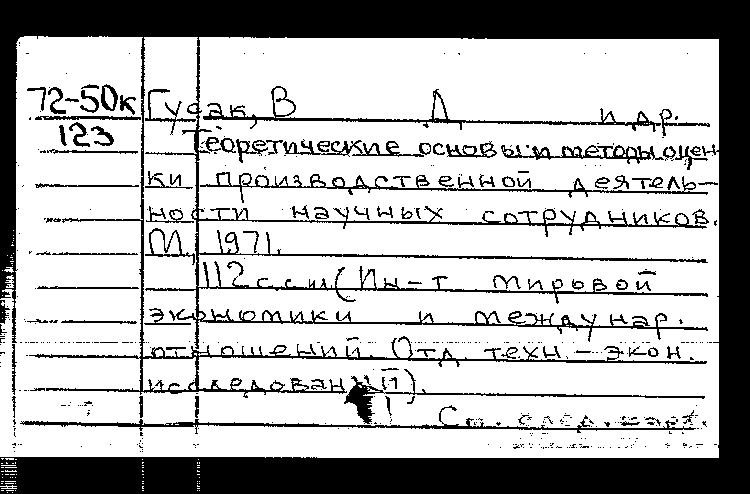 72-50к Гусак, В Д. и др.
123 Теоретические основы и методы оцен
ки производственной деятель-
ности научных сотрудников.
М., 1971.
112 с. см (Ин-т мировой
экономики и междунар.
отношений. Отд. техн.-экон.
исследований).
См. след. карт.